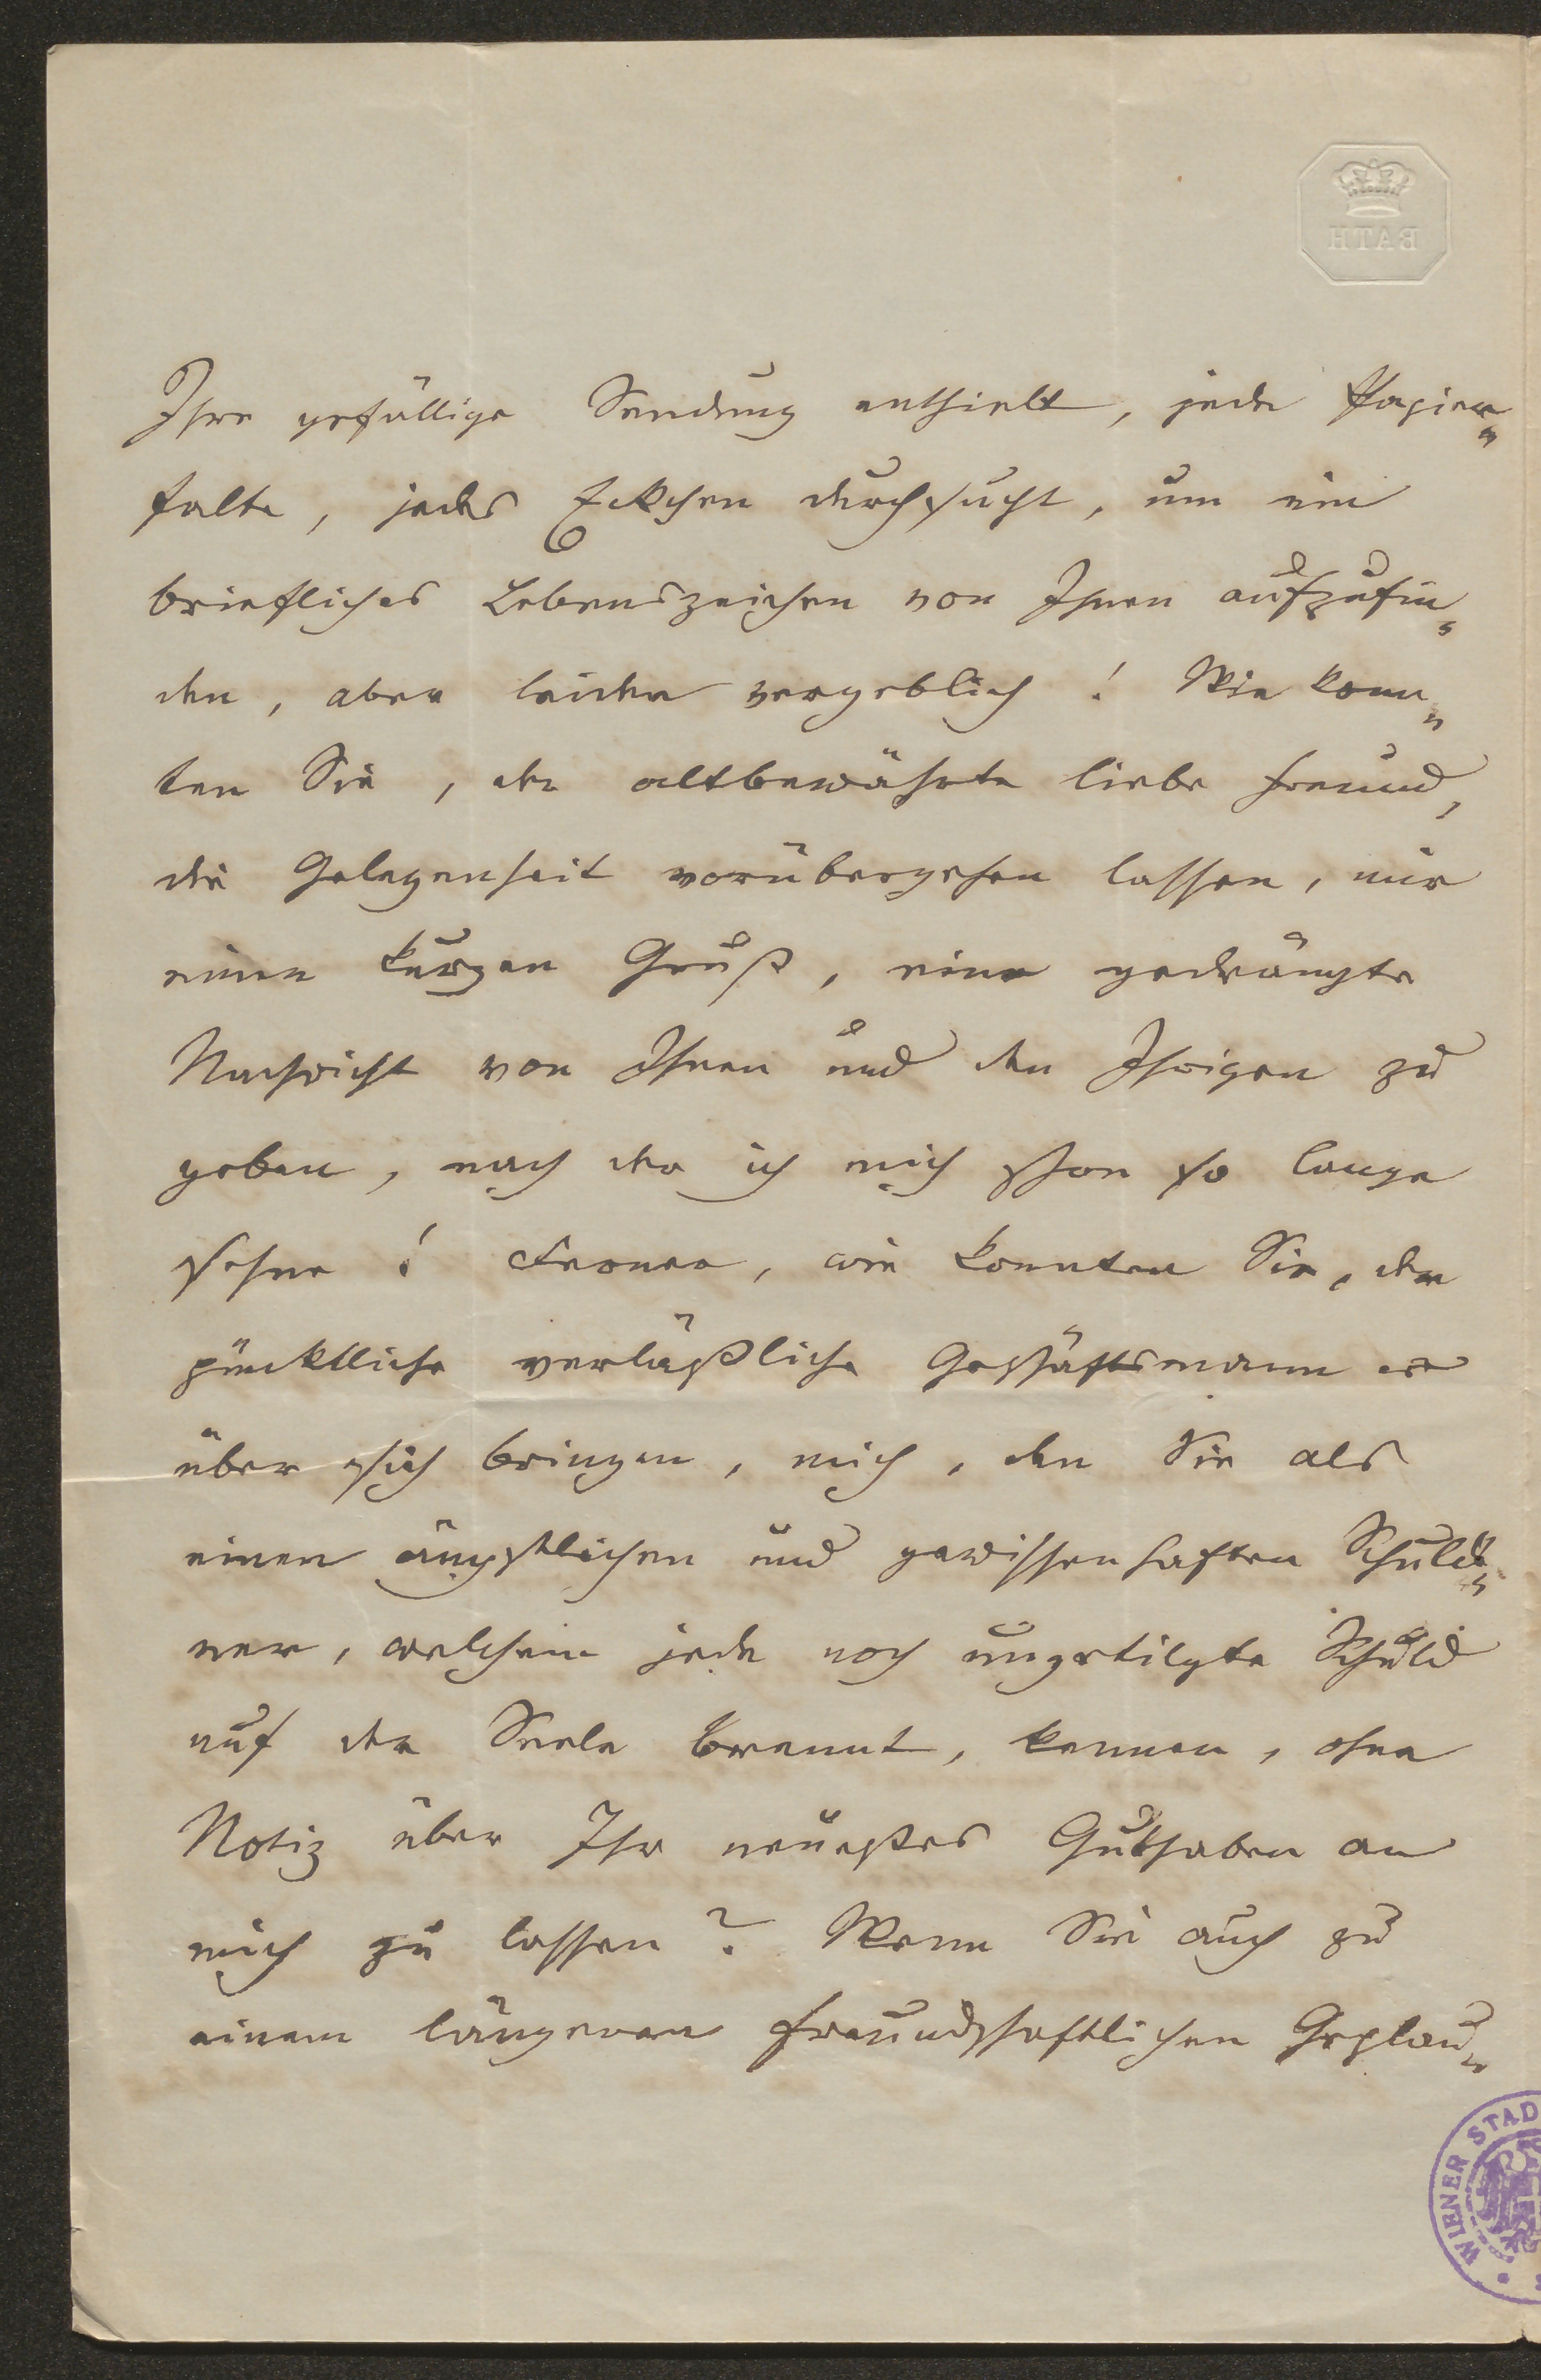 BATH
Ihre gefällige Sendung enthielt, jede Papier„
falte, jedes Eckchen durchsucht, um ein
briefliches Lebenszeichen von Ihnen aufzufin„
den, aber leider vergeblich! Wie konn„
ten Sie, der altbewährte liebe Freund,
die Gelegenheit vorübergehen lassen, mir
einen kurzen Gruß, eine gedrängte
Nachricht von Ihnen und den Ihrigen zu
geben, nach der ich mich schon so lange
sehne! Ferner, wie konnten Sie, der
pünktliche verläßliche Geschäftsmann es
über sich bringen, mich, den Sie als
einen ängstlichen und gewissenhaften Schuld„
ner, welchem jede noch ungetilgte Schuld
auf der Seele brennt, kennen, ohne
Notiz über Ihr neuestes Guthaben an
mich zu lassen? Wenn Sie auch zu
einem längeren freundschaftlichen Geplau„
WIENER STAD